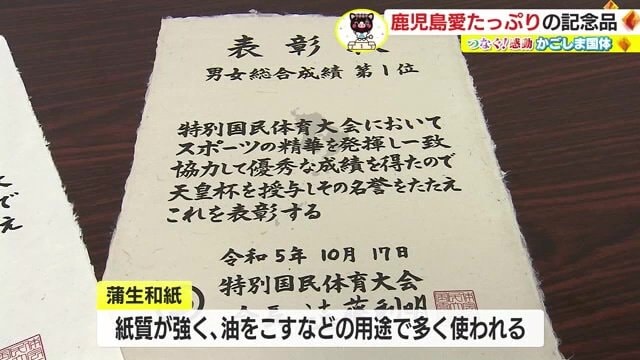 鹿児島愛たっぷりの記念品
つなぐ!感動 かごしま国体
表彰
男女総合成績 第1位
特別国民体育大会において
スポーツの精華を発揮し一致
協力して優秀な成績を得たので
天皇杯を授与しその名誉をたたえ
これを表彰する
令和5年 10月 17日
特別国民体育大会
蒲生和紙
紙質が強く、油をこすなどの用途で多く使われる